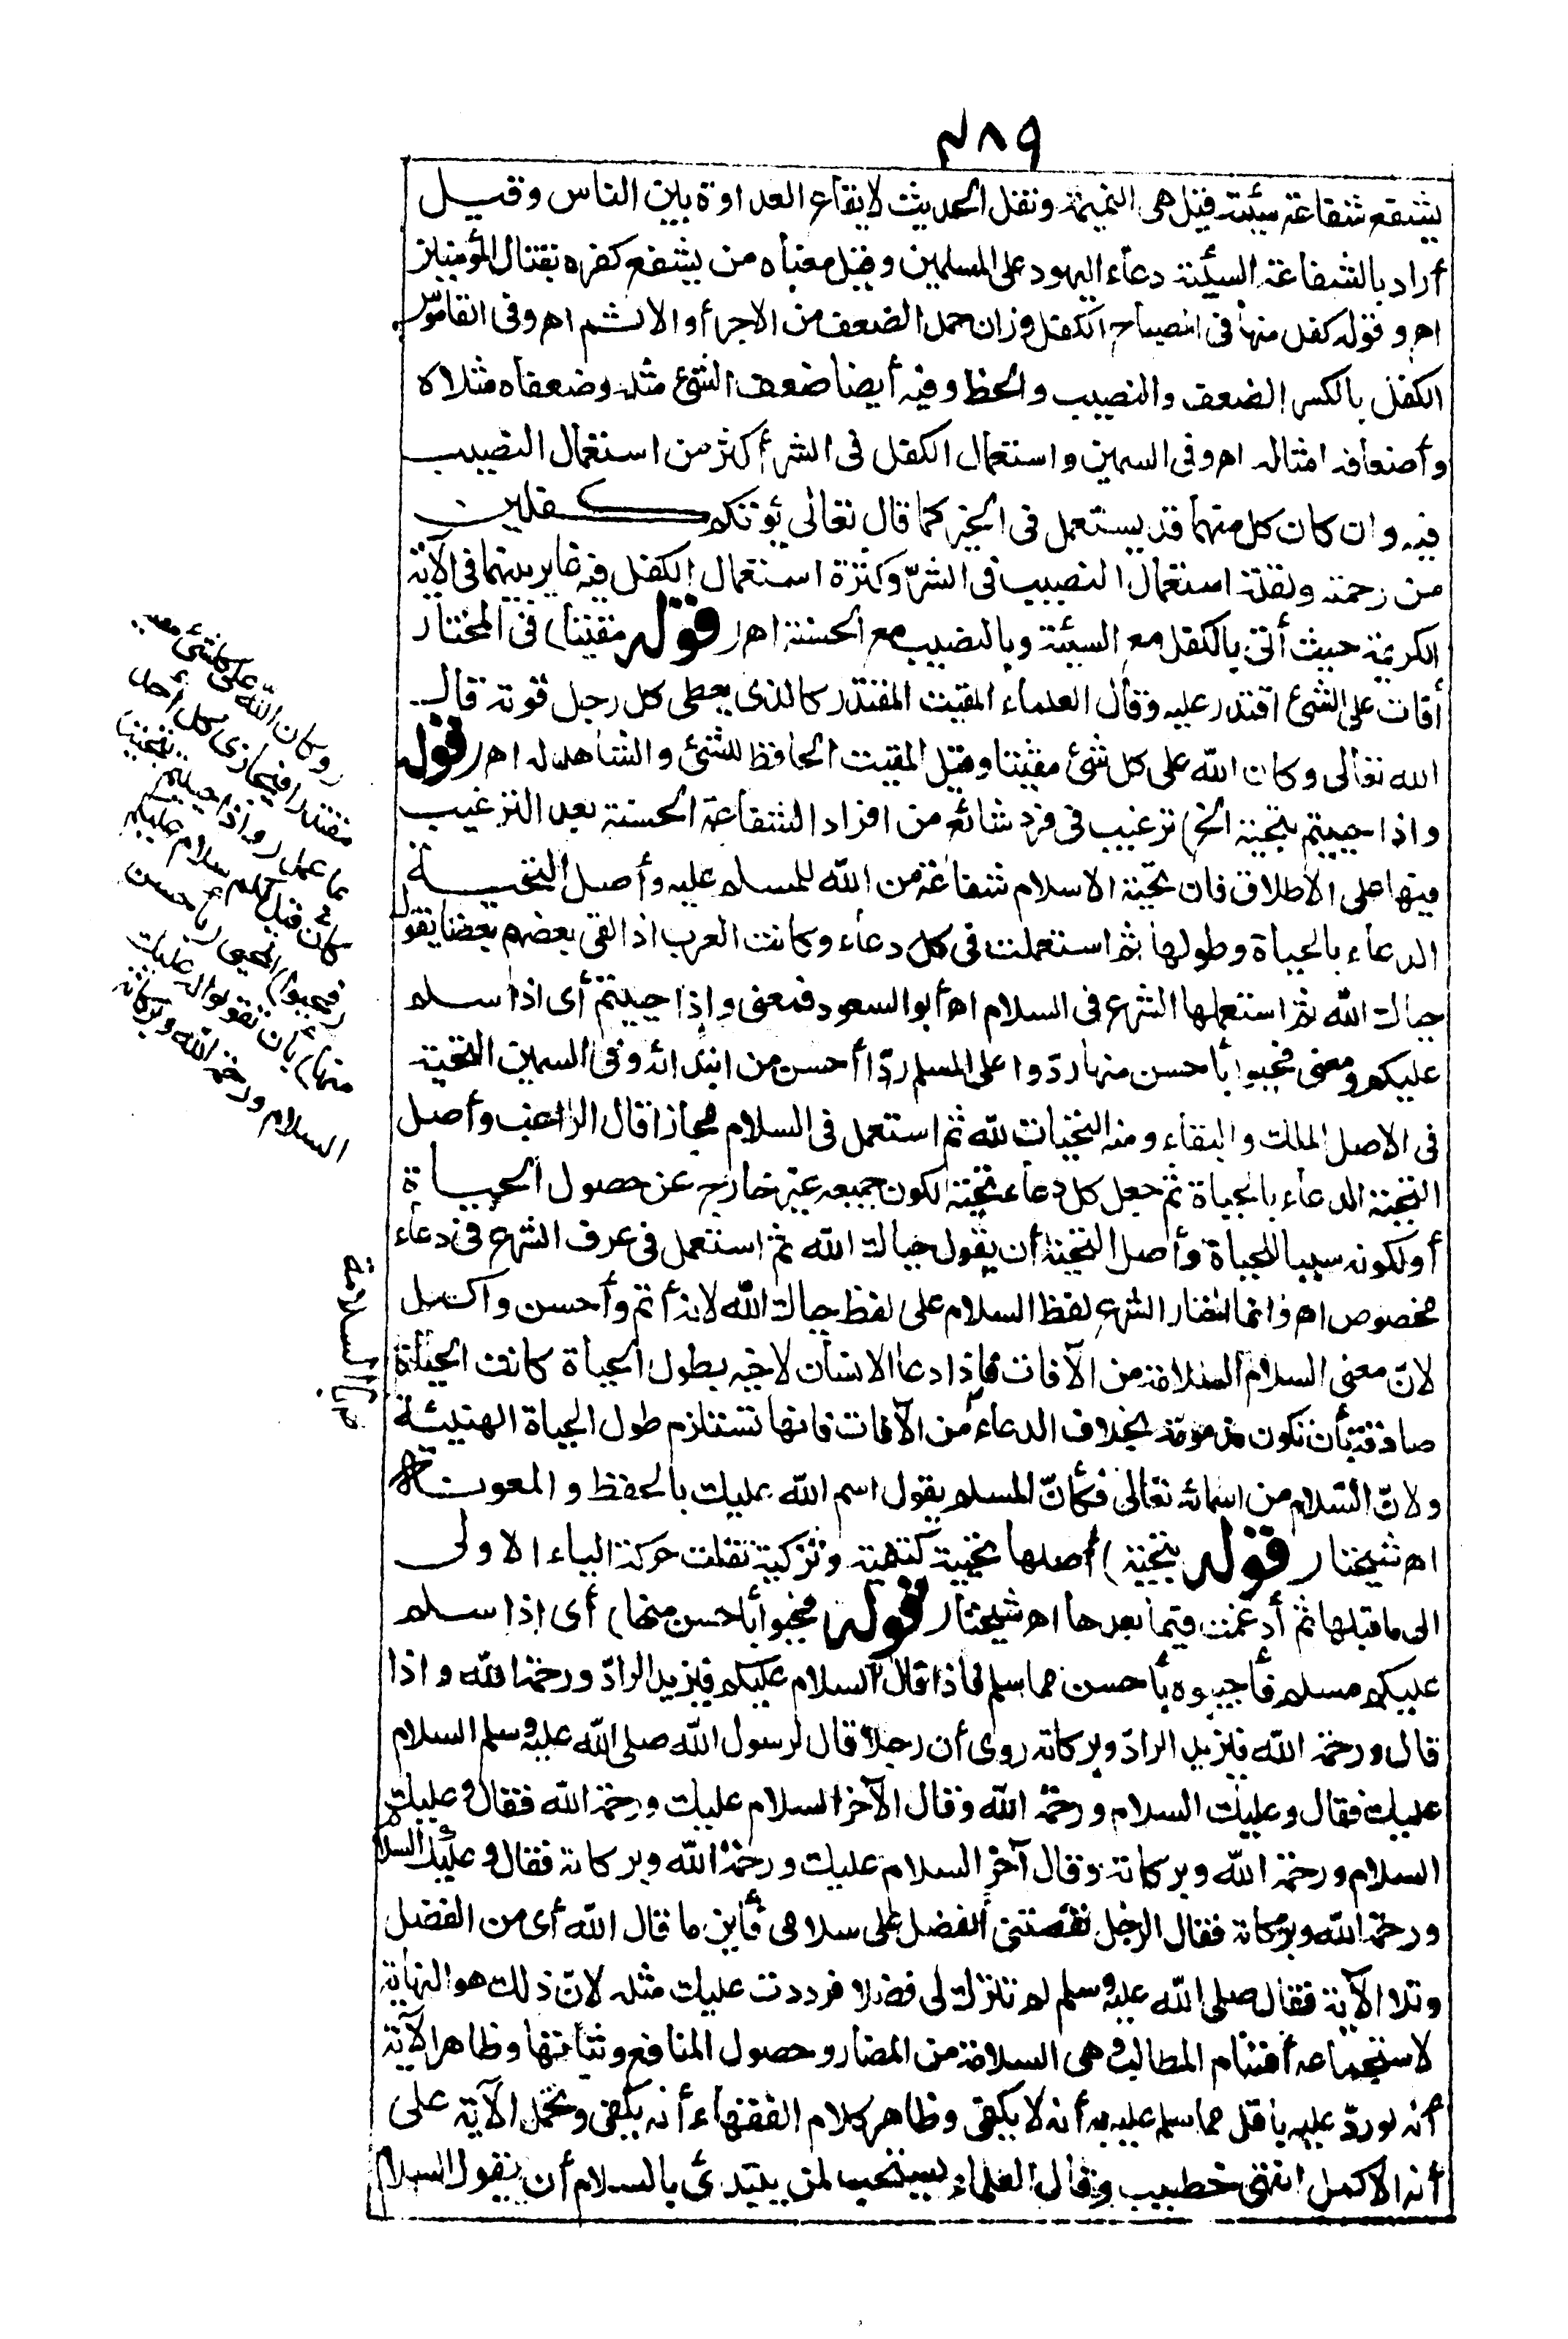 ٤٨٩
يشفع شفاعة سيئة فقيل هى النميمة ونقل الحديث لايقاع العداوة بين الناس وقيل
أراد بالشفاعة السيئة دعاء اليهود على المسلمين وقيل معناه من يشفع كفره بقتال المؤمنين
اهـ وقوله كفل منها فى المصباح الكفل وزان حمل الضعف من الاجر أو الاثم اهـ وفى القاموس
الكفل بالكسر الضعف والنصيب والحظ وفيه أيضا ضعف الشئ مثله وضعفاه مثلاه
وأضعافه امثاله اهـ وفى السمين واستعمال الكفل فى الشر أكثر من استعمال النصيب
فيه وان كان كل منهما قد يستعمل فى الخير كما قال تعالى يؤتكم كفلين
من رحمته ولقلة استعمال النصيب فى الشرّ وكثرة استعمال الكفل فيه غاير بينهما فى الآية
الكريمة حيث أتى بالكفل مع السيئة وبالنصيب مع الحسنة اهـ (قوله مقيتا) فى المختار
أقات على الشئ اقتدر عليه وقال العلماء المقيت المقتدر كالذى يعطى كل رجل قوته قال
الله تعالى وكان الله على كل شئ مقيتا وقيل المقيت الحافظ للشئ والشاهد له اهـ (قوله
واذا حييتم بتحية الخ) ترغيب فى فرد شائع من افراد الشفاعة الحسنة بعد الترغيب
فيها على الاطلاق فان تحية الاسلام شفاعة من الله للمسلم عليه وأصل التحية
الدعاء بالحياة وطولها ثم استعملت فى كل دعاء وكانت العرب اذا لقى بعضهم بعضا يقول
حياك الله ثم استعملها الشرع فى السلام اهـ أبو السعود فمعنى واذا حييتم أى اذا سلم
عليكم ومعنى فحيوا بأحسن منها ردّوا على المسلم ردّا أحسن من ابتدائه وفى السمين التحية
فى الاصل الملك والبقاء ومنه التحيات لله ثم استعمل فى السلام مجازا قال الراغب وأصل
التحية الدعاء بالحياة ثم جعل كل دعاء تحية لكون جميعه غير خارج عن حصول الحياة
أو لكونه سببا للحياة وأصل التحية أن يقول حياك الله ثم استعمل فى عرف الشرع فى دعاء
مخصوص اهـ وانما اختار الشرع لفظ السلام على لفظ حياك الله لانه أتم وأحسن واكمل
لانّ معنى السلام السلامة من الآفات فاذا دعا الانسان لاخيه بطول الحياة كانت الحياة
صادقة بأن تكون مذمومة بخلاف الدعاء من الآفات فانها تستلزم طول الحياة الهنيئة
ولانّ السّلام من اسمائه تعالى فكأنّ المسلم يقول اسم الله عليك بالحفظ والمعونة
اهـ شيخنا (قوله بتحية) أصلها تحيية كتنمية وتزكية نقلت حركة الياء الاولى
الى ما قبلها ثم أدغمت فيما بعدها اهـ شيخنا (قوله فحيوا بأحسن منها) أى اذا سلم
عليكم مسلم فأجيبوه بأحسن مما سلم فاذا قال السلام عليكم فيزيد الرادّ ورحمة الله واذا
قال ورحمة الله فيزيد الرادّ وبركاته روى أن رجلا قال لرسول الله صلى الله عليه وسلم السلام
عليك فقال وعليك السلام ورحمة الله وقال الآخر السلام عليك ورحمة الله فقال وعليك
السلام ورحمة الله وبركاته وقال آخر السلام عليك ورحمة الله وبركاته فقال وعليك السلام
ورحمة الله وبركاته فقال الرجل نقصتنى الفضل على سلامى فأين ما قال الله أى من الفضل
وتلا الآية فقال صلى الله عليه وسلم لم تترك لى فضلا فرددت عليك مثله لانّ ذلك هو النهاية
لاستجماعه أقسام المطالب وهى السلامة من المضار وحصول المنافع وثباتها وظاهر الآية
أنه لو ردّ عليه باقل مما سلم عليه به أنه لا يكفى وظاهر كلام الفقهاء أنه يكفى وتحمل الآية على
أنه الاكمل انتهى خطيب وقال العلماء يستحب لمن يبتدئ بالسلام أن يقول السلام
(وكان الله على كل شئ مقيتا
مقتدرا فيجازى كل أحد
بما عمل (واذا حييتم بتحية)
كأن قيل لكم سلام عليكم
(فحيوا) المحيى (بأحسن
منها) بأن تقولوا له عليك
السلام ورحمة الله وبركاته
من السلامة